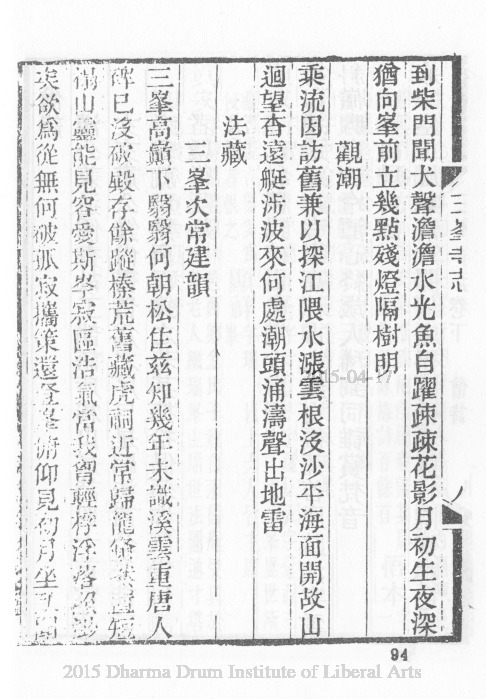 到柴門聞犬聲澹澹水光魚自躍疎疎花影月初生夜深
猶向峯前立幾點殘燈隔樹明
觀潮
乘流因訪舊兼以探江隈水漲雲根沒沙平海面開故山
迴望杳遠艇涉波來何處潮頭涌濤聲出地雷
法藏
三峯次常建韻
三峯高巔下翳翳何朝松住茲知幾年未識溪雲重唐人
碑已沒破殿存餘蹤榛荒舊藏虎洞近常歸龍
山靈能見容愛斯岑寂區浩氣當我胷輕
矣欲為從無何破孤寂攜策還登峯俯仰見初月坐
三峯寺志
94
2015-04-17
2015 Dharma Drum Institute of Liberal Arts